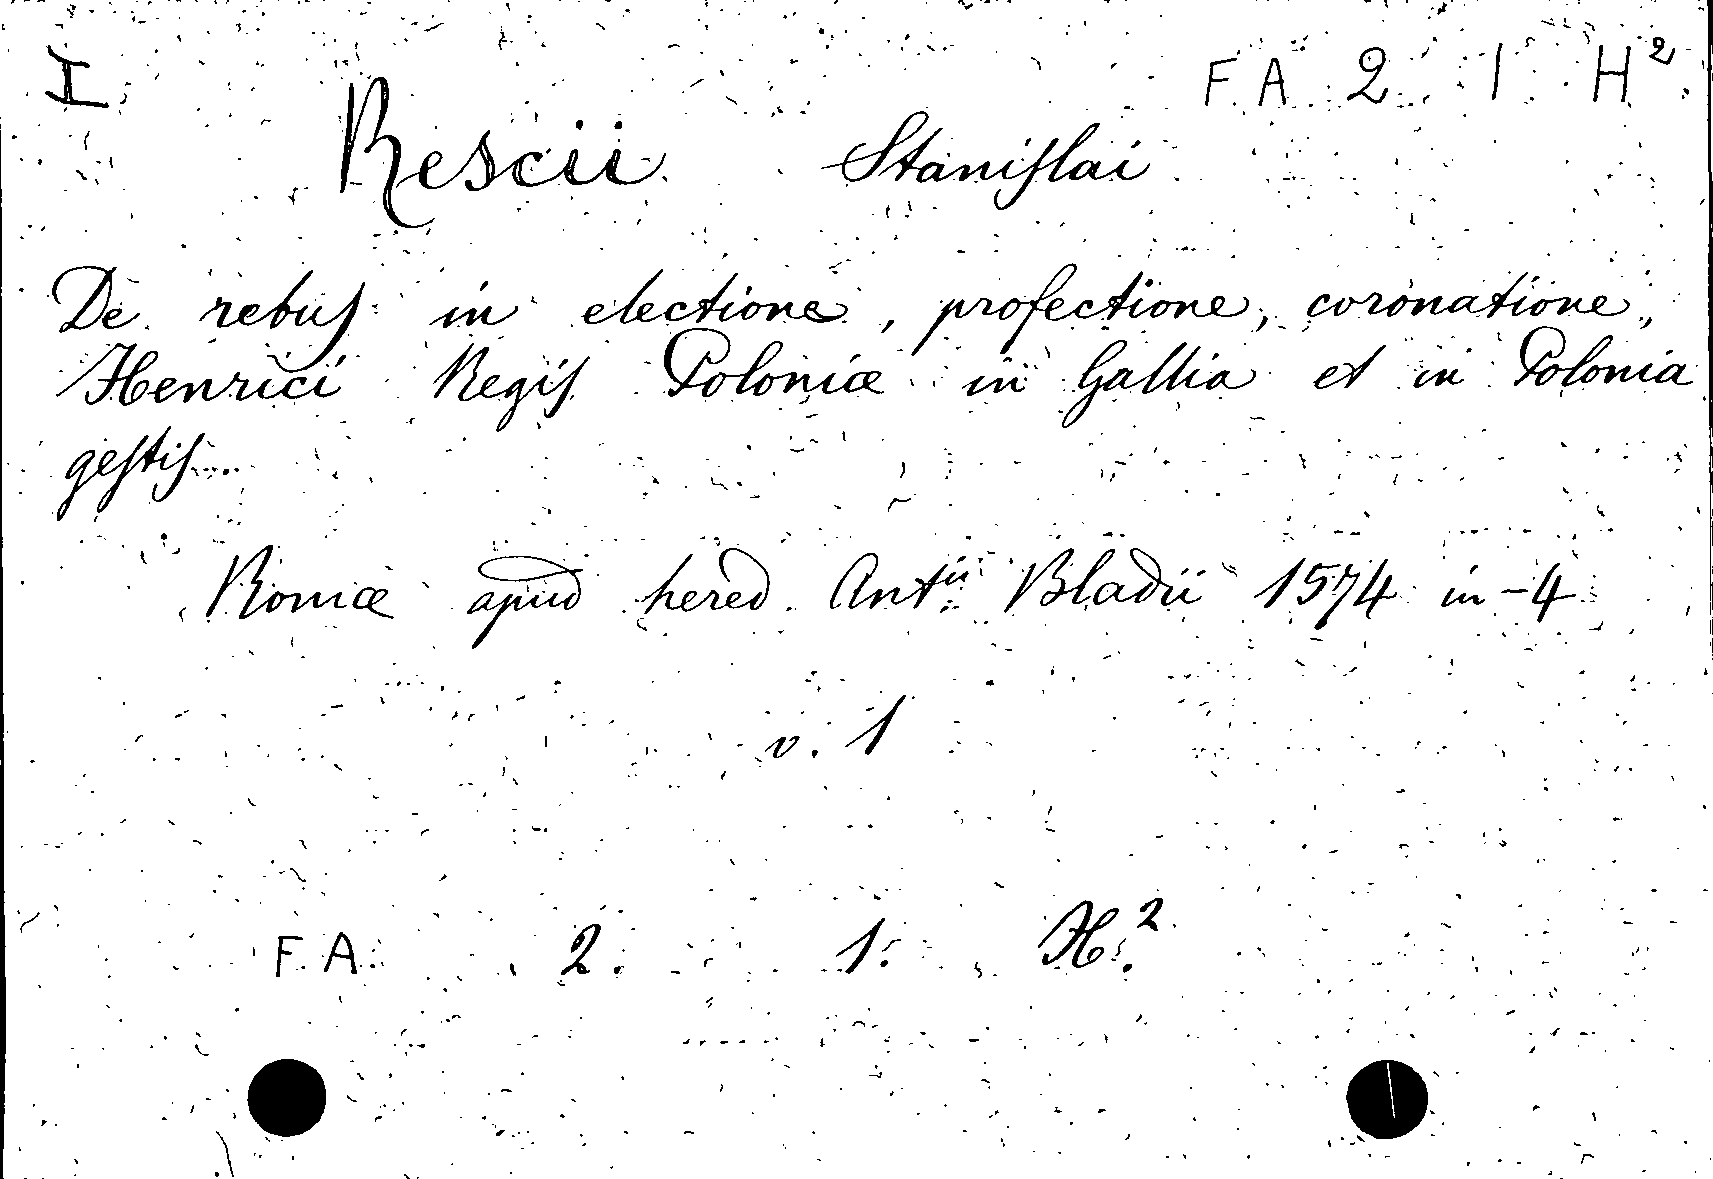 I F A 2 1 H²
Rescii Stanislai
De rebus in electione, profectione, coronatione,
Henrici Regis Poloniæ in Gallia et in Polonia
gestis....
Romæ apud hered. Antii Bladii 1574 in-4
v. 1
F. A. 2. 1. H.²